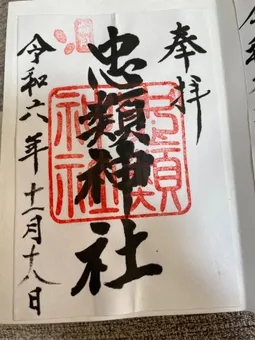 奉拝
忠類神社
令和六年十一月十八日